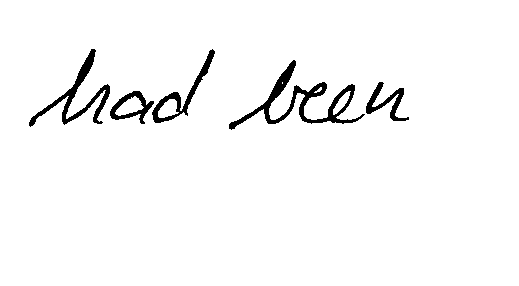 had been